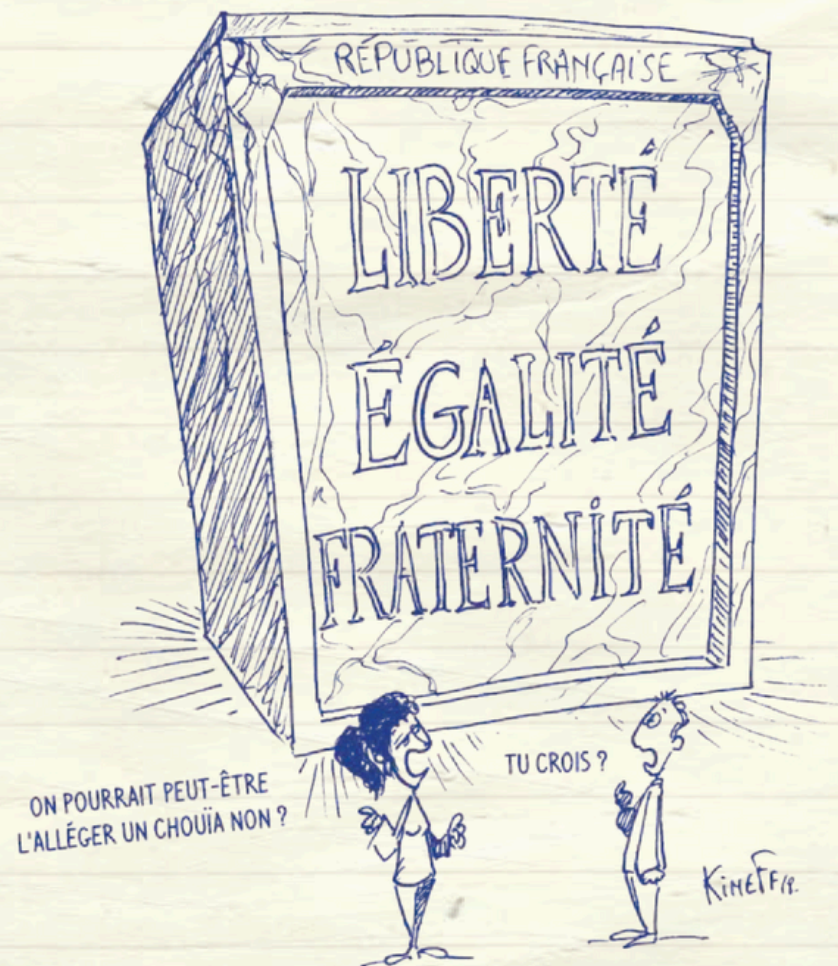 RÉPUBLIQUE FRANÇAISE
LIBERTÉ
ÉGALITÉ
FRATERNITÉ
ON POURRAIT PEUT-ÊTRE
L'ALLÉGER UN CHOUÏA NON ?
TU CROIS ?